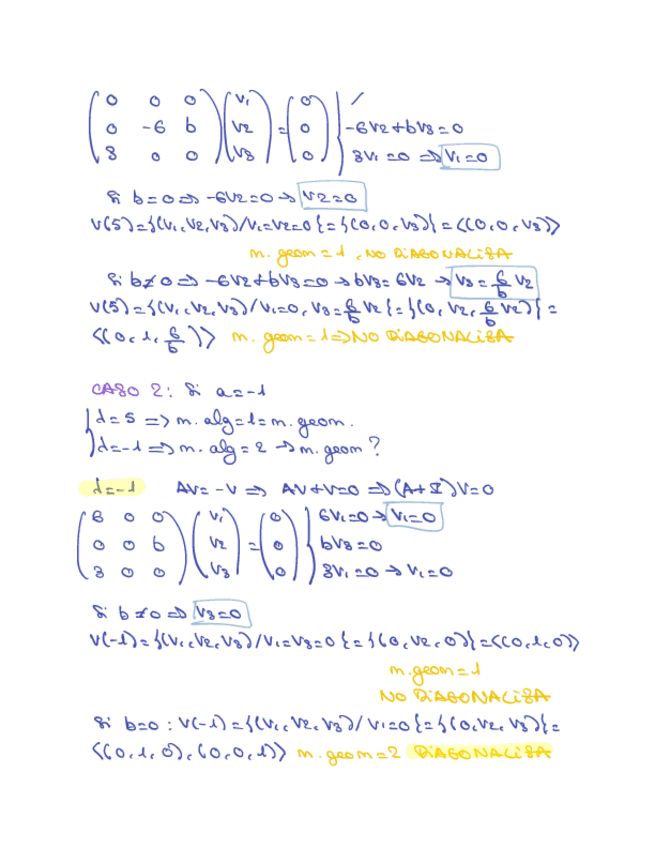 ( 0 0 0 ) ( v1 ) ( 0 )
( 0 -6 b ) ( v2 ) = ( 0 ) } -6v2+bv3=0
( 3 0 0 ) ( v3 ) ( 0 ) 3v1=0 ⇒ v1=0
Si b=0 ⇒ -6v2=0 → v2=0
V(5)={(v1,v2,v3)/v1=v2=0}={(0,0,v3)}=<(0,0,v3)>
m. geom=1, NO DIAGONALIZA
Si b≠0 ⇒ -6v2+bv3=0 → bv3=6v2 → v3=6/b v2
V(5)={(v1,v2,v3)/v1=0, v3=6/b v2}={(0,v2,6/b v2)}=
<(0,1,6/b)> m. geom=1⇒NO DIAGONALIZA
CASO 2: Si a=-1
λ=5 ⇒ m. alg=1=m. geom.
λ=-1 ⇒ m. alg=2 → m. geom?
λ=-1 AV=-V ⇒ AV+V=0 ⇒ (A+I)V=0
( 6 0 0 ) ( v1 ) ( 0 ) 6v1=0 → v1=0
( 0 0 b ) ( v2 ) = ( 0 ) } bv3=0
( 3 0 0 ) ( v3 ) ( 0 ) 3v1=0 → v1=0
Si b≠0 ⇒ v3=0
V(-1)={(v1,v2,v3)/v1=v3=0}={(0,v2,0)}=<(0,1,0)>
m. geom=1
NO DIAGONALIZA
Si b=0: V(-1)={(v1,v2,v3)/v1=0}={(0,v2,v3)}=
<(0,1,0),(0,0,1)> m. geom=2 DIAGONALIZA